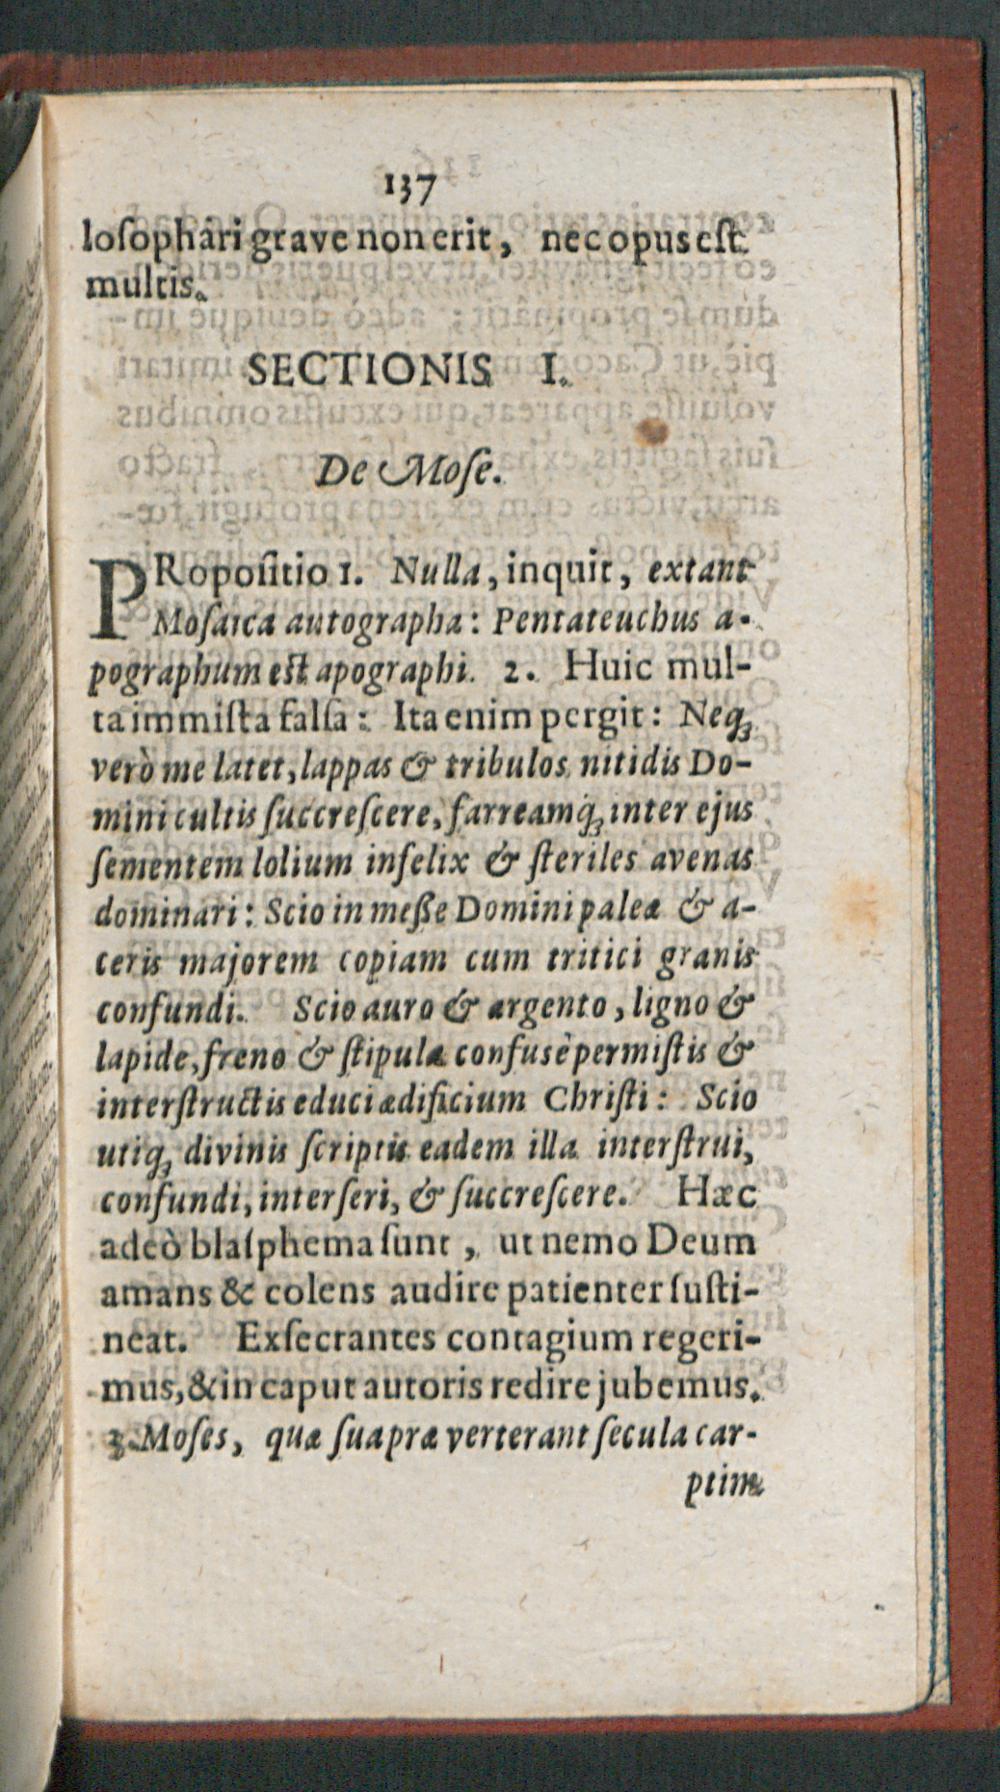 137
losophari grave non erit, nec opus est
multis.
SECTIONIS I.
De Mose.
PRopositio 1. Nulla, inquit, extant
Mosaica autographa: Pentateuchus a-
pographum est apographi. 2. Huic mul-
ta immista falsa: Ita enim pergit: Neq;
verò me latet, lappas & tribulos nitidis Do-
mini cultis succrescere, farreamq́; inter ejus
sementem lolium infelix & steriles avenas
dominari: Scio in meße Domini paleæ & a-
ceris majorem copiam cum tritici granis
confundi. Scio auro & argento, ligno &
lapide, freno & stipula confusè permistis &
interstructis educi ædificium Christi: Scio
utiq; divinis scriptis eadem illa interstrui,
confundi, interseri, & succrescere. Hæc
adeò blasphema sunt, ut nemo Deum
amans & colens audire patienter susti-
neat. Exsecrantes contagium regeri-
mus, & in caput autoris redire jubemus.
3. Moses, quæ sua præverterant secula car-
ptim